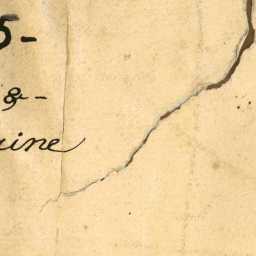 5-
&-
aine